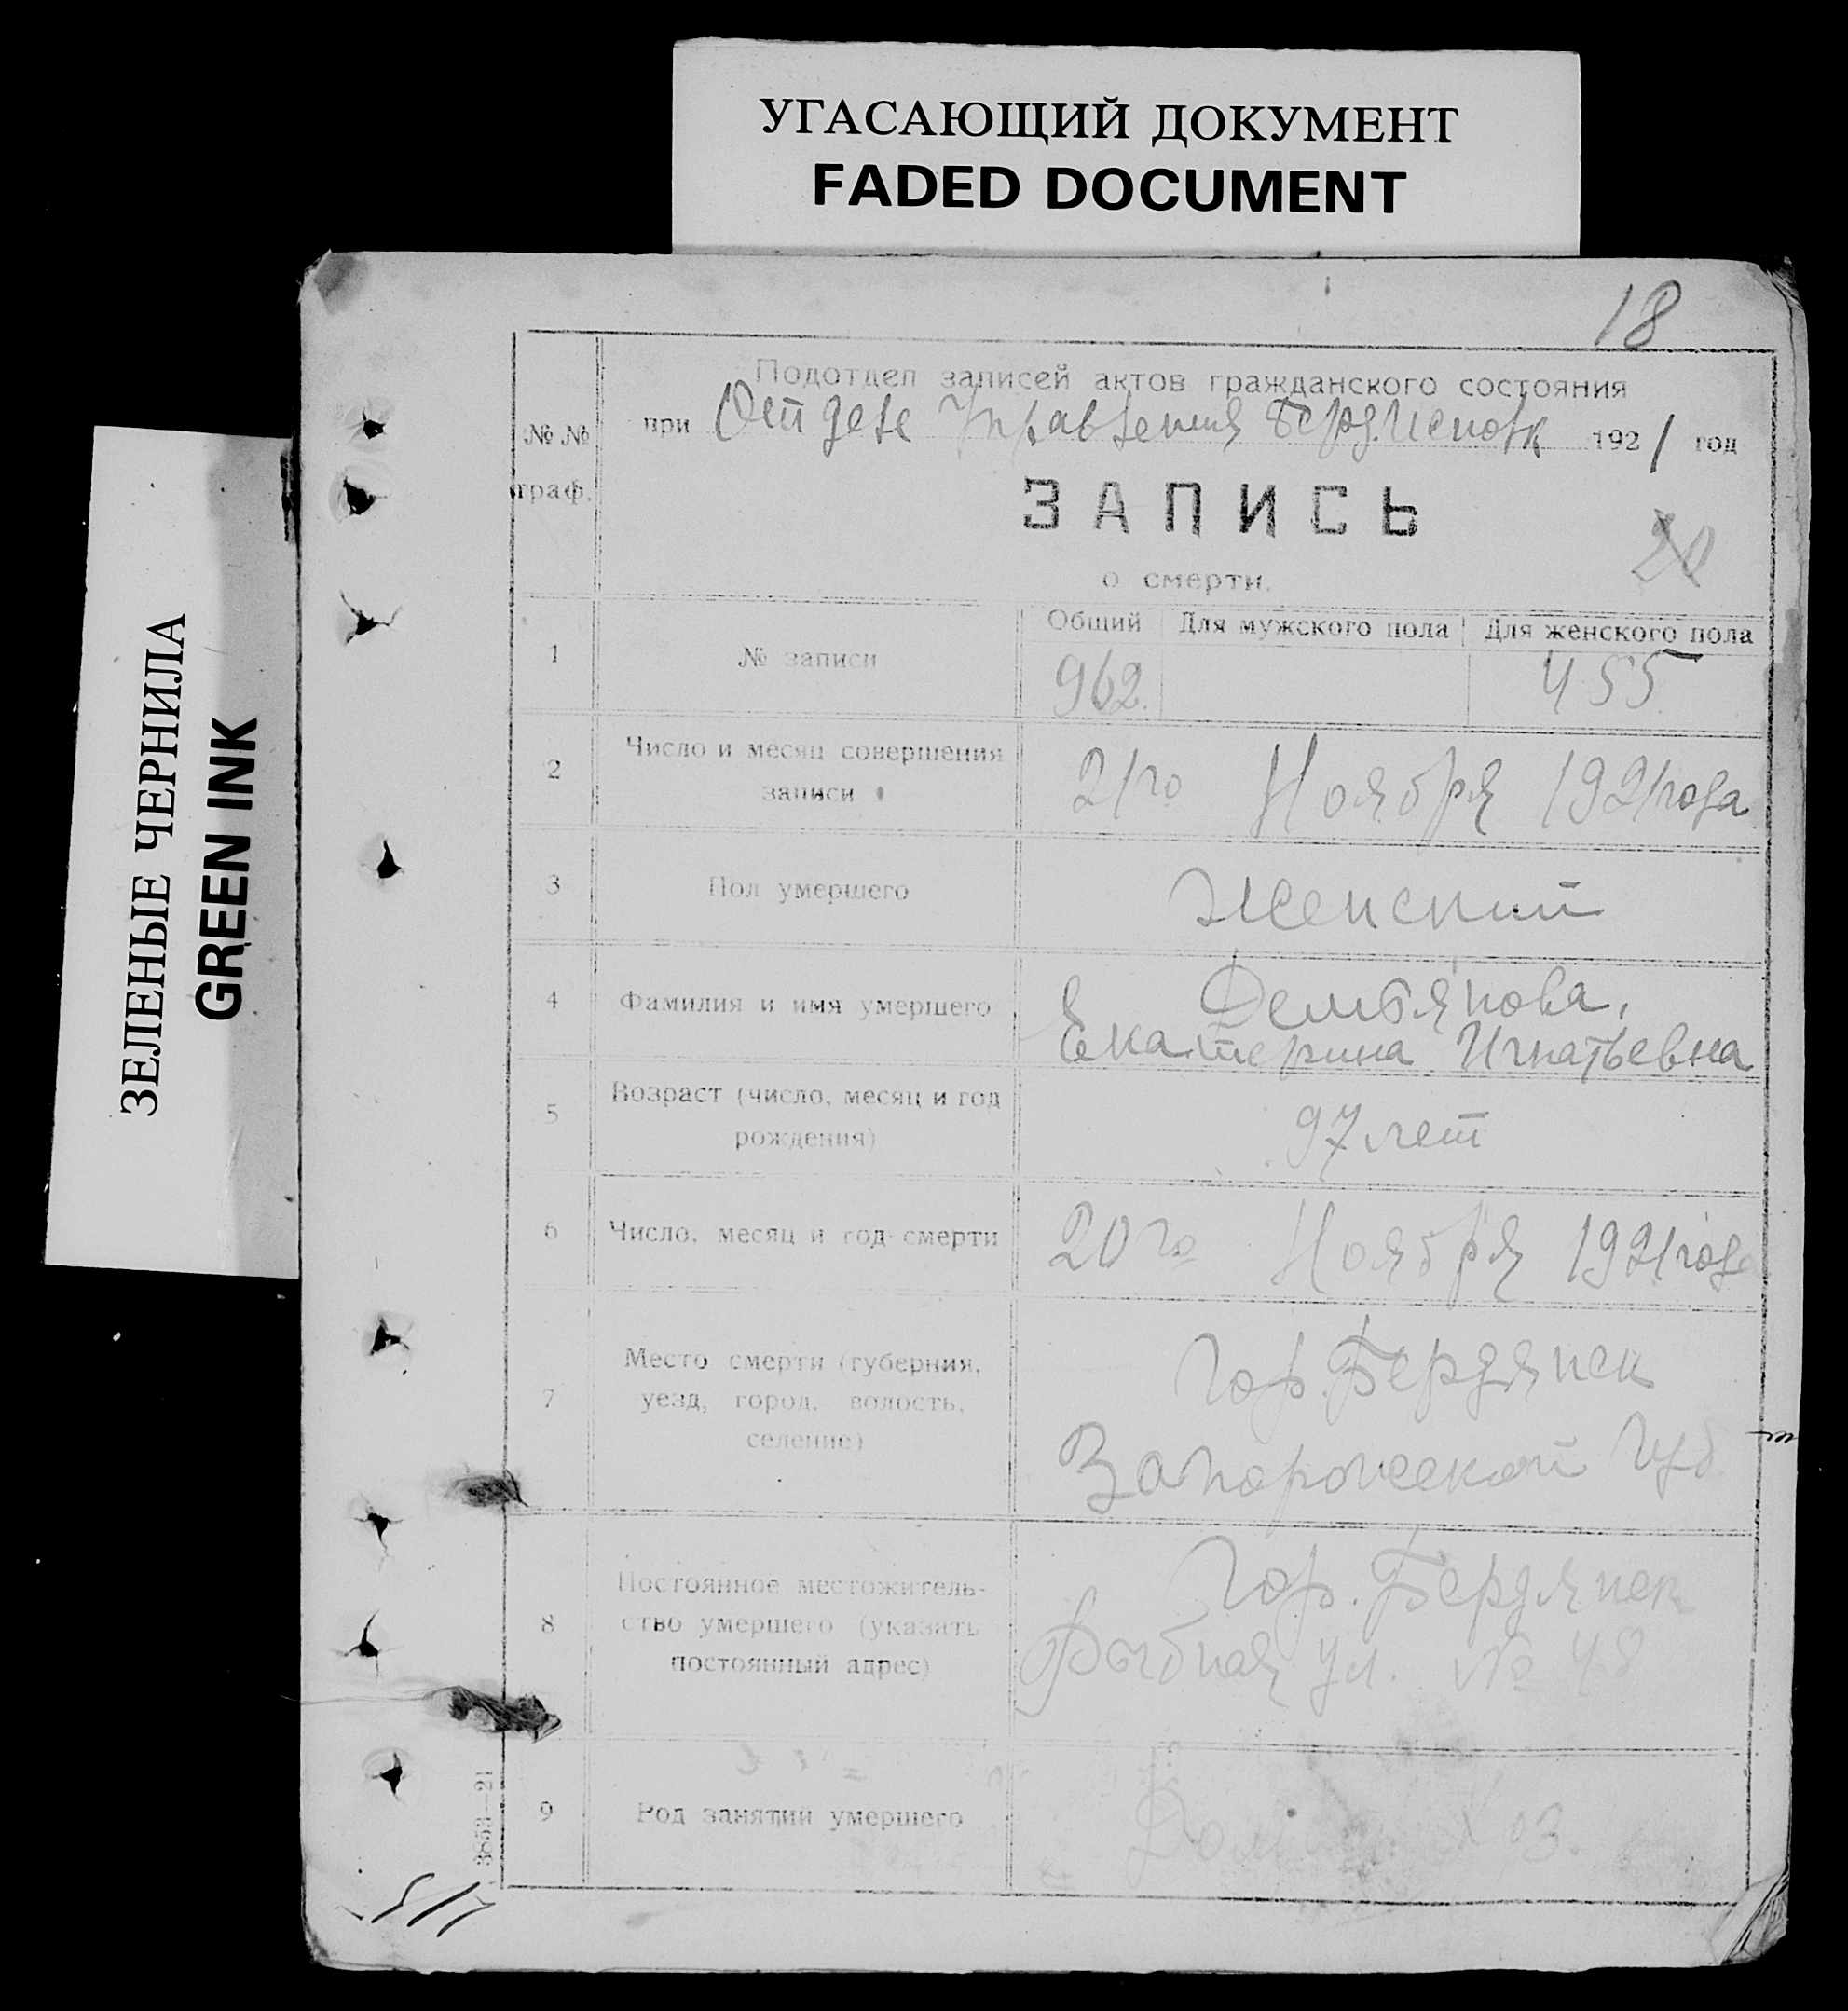 УГАСАЮЩИЙ ДОКУМЕНТ
FADED DOCUMENT
ЗЕЛЕНЫЕ ЧЕРНИЛА
GREEN INK
18
№ №
граф.
Подотдел записей актов гражданского состояния
при Отделе Управления 1921 год
ЗАПИСЬ
20
о смерти.
Общий Для мужского пола Для женского пола
1 № записи 962. 455
2 Число и месяц совершения
записи
21го Ноября 1921 года
3 Пол умершего Женский
4 Фамилия и имя умершего
Демьянова,
Екатерина Игнатьевна
5 Возраст (число, месяц и год
рождения)
97 лет
6 Число, месяц и год смерти 20го Ноября 1921 года
7 Место смерти (губерния,
уезд, город, волость,
селение)
Гор. Бердянск
Запорожской Губ
8 Постоянное местожитель-
ство умершего (указать
постоянный адрес)
Гор. Бердянск
Рыбная ул. № 48
9 Род занятий умершего Дом. хоз.
3853—21